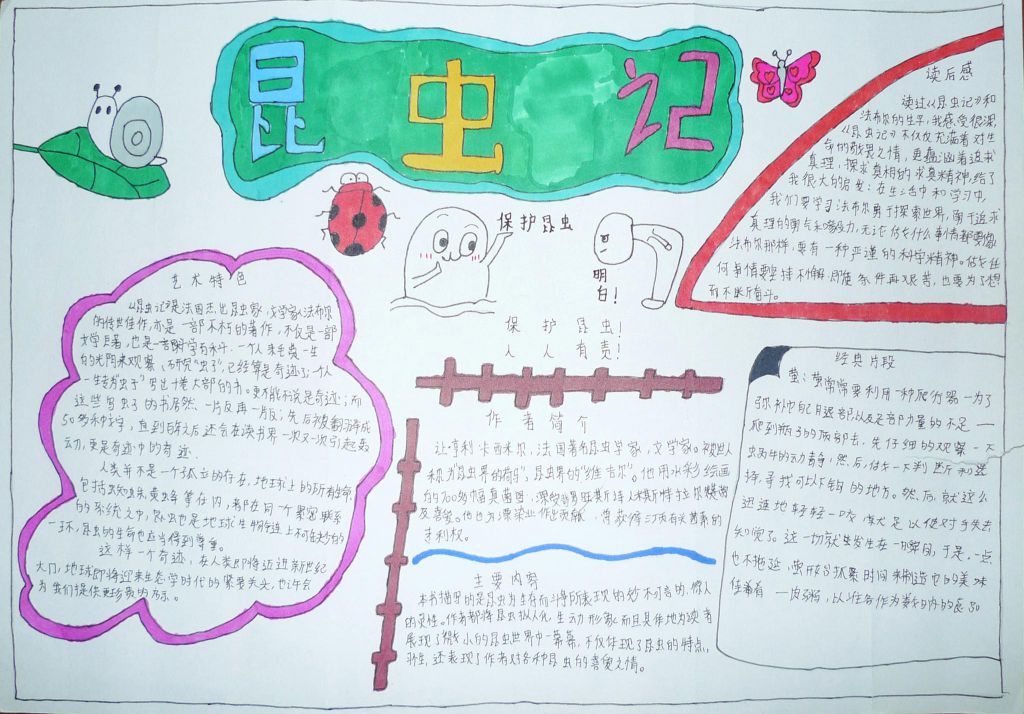 昆虫记
读后感
读过《昆虫记》和
法布尔的生平，我感受很深，
《昆虫记》不仅仅充满着对生
命的敬畏之情，更蕴涵着追求
真理、探求真相的求真精神，给了
我很大的启发：在生活中和学习中，
我们要学习法布尔勇于探索世界，勇于追求
真理的勇气和毅力，无论做什么事情都要像
法布尔那样，要有一种严谨的科学精神。做任
何事情要坚持不懈，即使条件再艰苦，也要为了理想
而不断奋斗。
保护昆虫
明白！
保护昆虫！
人人有责！
艺术特色
《昆虫记》是法国杰出昆虫家，文学家法布尔
的传世佳作，亦是一部不朽的著作，不仅是一部
文学巨著，也是一部科学百科。一个人耗费一生
的光阴来观察、研究"虫子"，已经算是奇迹了；一个人
一生专为"虫子"写出十卷大部的书，更不能不说是奇迹；而
这些写虫子的书居然一版再一版；先后被翻译成
50多种文字，直到百年之后还会在读书界一次又一次引起轰
动，更是奇迹中的奇迹。
人类并不是一个孤立的存在，地球上的所有生命
包括蜘蛛黄蜂等在内，都在同一个紧密联系
的系统之中，昆虫也是地球生物链上不可缺少的
一环，昆虫的生命也应当得到尊重。
这样一个奇迹，在人类即将迈进新世纪
大门，地球即将迎来生态学时代的紧要关头，也许会
为我们提供更珍贵的启示。
作者简介
让·亨利·卡西米尔，法国著名昆虫学家，文学家。被世人
称为"昆虫界的荷马"，昆虫界的"维吉尔"。他用水彩绘画
的700多幅真菌图，深受普罗旺斯诗人米斯特拉尔赞赏
及喜爱。他也为漂染业作出贡献，曾获得三项有关茜素的
专利权。
主要内容
本书描写的是昆虫为生存而斗争所表现的妙不可言的、惊人
的灵性。作者都将昆虫拟人化，生动形象而且具体地为读者
展现了微小的昆虫世界中一幕幕，不仅体现了昆虫的特点，
习性，还表现了作者对各种昆虫的喜爱之情。
经典片段
萤：萤常常要利用一种爬行器一为了
弥补他自己腿部以及足部力量的不足一
爬到瓶子的顶部去，先仔细的观察一下
虫蜗牛的动静，然后，做一下判断和选
择，寻找可以下钩的地方。然后，就这么
迅速地轻轻一咬，就足以使对手失去
知觉了。这一切就生发生在一瞬间，于是，一点
也不拖延，萤开始抓紧时间来制造它的美味
佳肴一肉粥，以准备作为数日内的食